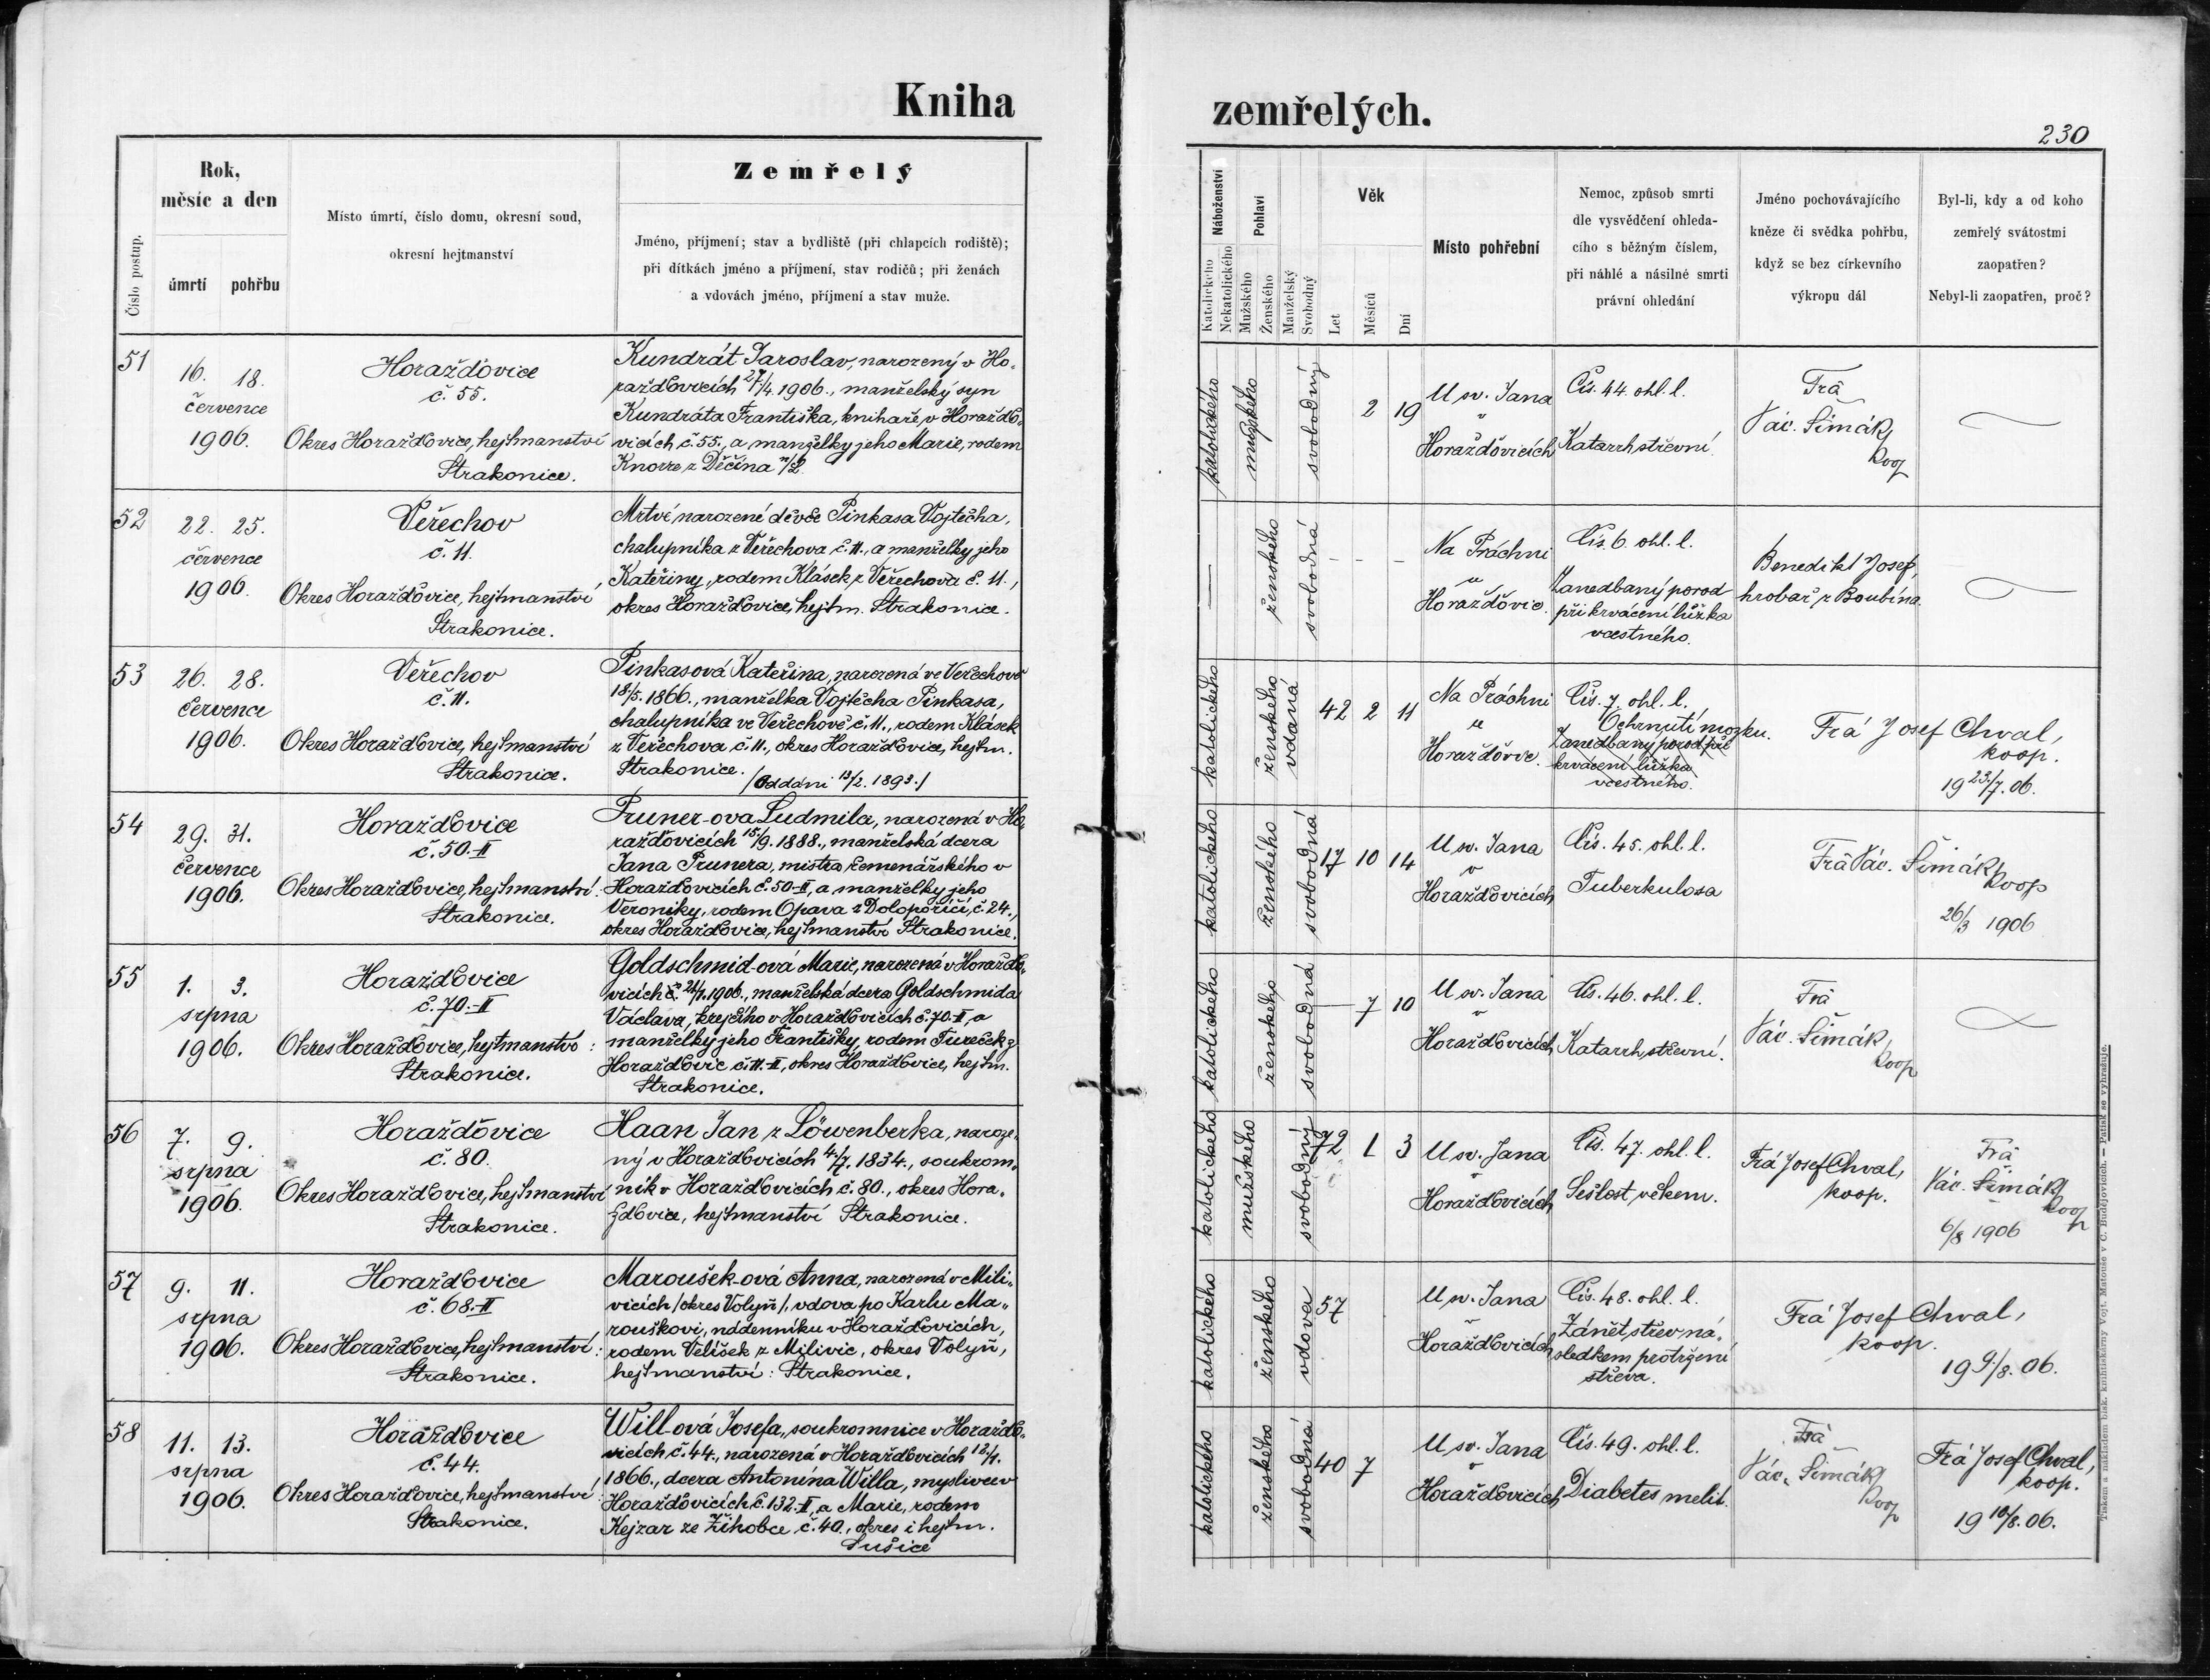 Kniha
zemřelých.
230
Číslo postup.
Rok,
měsíc a den
úmrtí pohřbu
Místo úmrtí, číslo domu, okresní soud,
okresní hejtmanství
Zemřelý
Jméno, příjmení; stav a bydliště (při chlapcích rodiště);
při dítkách jméno a příjmení, stav rodičů; při ženách
a vdovách jméno, příjmení a stav muže.
Náboženství
Katolického
Nekatolického
Pohlaví
Mužského
Ženského
Manželský
Svobodný
Věk
Let
Měsíců
Dní
Místo pohřební
Nemoc, způsob smrti
dle vysvědčení ohleda-
cího s běžným číslem,
při náhlé a násilné smrti
právní ohledání
Jméno pochovávajícího
kněze či svědka pohřbu,
když se bez církevního
výkropu dál
Byl-li, kdy a od koho
zemřelý svátostmi
zaopatřen?
Nebyl-li zaopatřen, proč?
51
16. 18.
července
1906.
Horažďovice
č. 55.
Okres Horažďovice, hejtmanství
Strakonice.
Kundrát Jaroslav, narozený v Ho-
ražďovicích 27/4. 1906., manželský syn
Kundráta Františka, knihaře v Horaždo-
vicích č. 55., a manželky jeho Marie, rodem
Knorre z Děčína
katolického
mužského
svobodný
2 19
U sv. Jana
v
Horažďovicích
Čís. 44. ohl. l.
Katarrh střevní.
Frá
Vác. Šimák,
koop
52
22. 25.
července
1906.
Veřechov
č. 11.
Okres Horažďovice, hejtmanství
Strakonice.
Mrtvé narozené děvče Pinkasa Vojtěcha,
chalupníka z Veřechova č. 11., a manželky jeho
Kateřiny, rodem Klásek z Veřechova č. 11.,
okres Horažďovice, hejtm. Strakonice.
ženského
svobodná
Na Práchni
u
Horažďovic.
Čís. 6. ohl. l.
Zanedbaný porod
při krvácení lůžka
vcestného.
Benedikt Josef,
hrobař z Boubína.
53
26. 28.
července
1906.
Veřechov
č. 11.
Okres Horažďovice, hejtmanství
Strakonice.
Pinkasová Kateřina, narozená ve Veřechově
18/5. 1866., manželka Vojtěcha Pinkasa,
chalupníka ve Veřechově č. 11., rodem Klásek
z Veřechova č. 11., okres Horažďovice, hejtm.
Strakonice. /Oddáni 13/2. 1893./
katolického
ženského
vdaná
42 2 11
Na Práchni
u
Horažďovic.
Čís. 7. ohl. l.
Ochrnutí mozku.
Zanedbaný porod při
krvácení lůžka
vcestného.
Frá Josef Chval,
koop.
19 23/7. 06.
54
29. 31.
července
1906.
Horažďovice
č. 50.-II
Okres Horažďovice, hejtmanství:
Strakonice.
Pruner-ova Ludmila, narozená v Ho-
ražďovicích 15/9. 1888., manželská dcera
Jana Prunera, mistra řemenářského v
Horažďovicích č. 50-II, a manželky jeho
Veroniky, rodem Opava z Dolopoříčí, č. 24.,
okres Horažďovice, hejtmanství Strakonice.
katolického
ženského
svobodná
17 10 14
U sv. Jana
v
Horažďovicích
Čís. 45. ohl. l.
Tuberkulosa
Frá Vác. Šimák,
koop
26/3 1906
55
1. 3.
srpna
1906.
Horažďovice
č. 70.-II
Okres Horažďovice, hejtmanství:
Strakonice.
Goldschmid-ová Marie, narozená v Horaždo-
vicích 1906., manželská dcera Goldschmida
Václava, krejčího v Horažďovicích č. 70.-II, a
manželky jeho Františky, rodem Tureček z
Horažďovic č. 11.-II, okres Horažďovice, hejtm.
Strakonice.
katolického
ženského
svobodná
— 7 10
U sv. Jana
v
Horažďovicích
Čís. 46. ohl. l.
Katarrh střevní.
Frá
Vác. Šimák,
koop
56
7. 9.
srpna
1906.
Horažďovice
č. 80.
Okres Horažďovice, hejtmanství
Strakonice.
Haan Jan z Löwenberka, naroze-
ný v Horažďovicích 4/7. 1834., soukrom-
ník v Horažďovicích č. 80., okres Hora-
žďovice, hejtmanství Strakonice.
katolického
mužského
svobodný
72 1 3
U sv. Jana
v
Horažďovicích
Čís. 47. ohl. l.
Sešlost věkem.
Frá Josef Chval,
koop.
Frá
Vác. Šimák,
koop
6/8 1906
57
9. 11.
srpna
1906.
Horažďovice
č. 68.-II
Okres Horažďovice, hejtmanství:
Strakonice.
Maroušek-ová Anna, narozená v Mili-
vicích /okres Volyň/, vdova po Karlu Ma-
rouškovi, nádenníku v Horažďovicích,
rodem Velíšek z Milivic, okres Volyň,
hejtmanství: Strakonice.
katolického
ženského
vdova
57
U sv. Jana
v
Horažďovicích
Čís. 48. ohl. l.
Zánět střev ná-
sledkem protržení
střeva.
Frá Josef Chval,
koop.
19 9/8. 06.
58
11. 13.
srpna
1906.
Horažďovice
č. 44.
Okres Horažďovice, hejtmanství
Strakonice.
Will-ová Josefa, soukromnice v Horaždo-
vicích č. 44., narozená v Horažďovicích 12/1.
1866., dcera Antonína Willa, myslivce v
Horažďovicích č. 132.-II, a Marie, rodem
Kejzar ze Žihobce č. 40., okres i hejtm.
Sušice
katolického
ženského
svobodná
40 7
U sv. Jana
v
Horažďovicích
Čís. 49. ohl. l.
Diabetes melit.
Frá
Vác. Šimák,
koop
Frá Josef Chval,
koop.
19 10/8. 06.
Tiskem a nákladem bisk. knihtiskárny Vojt. Matouše v Č. Budějovicích. — Patisk se vyhražuje.